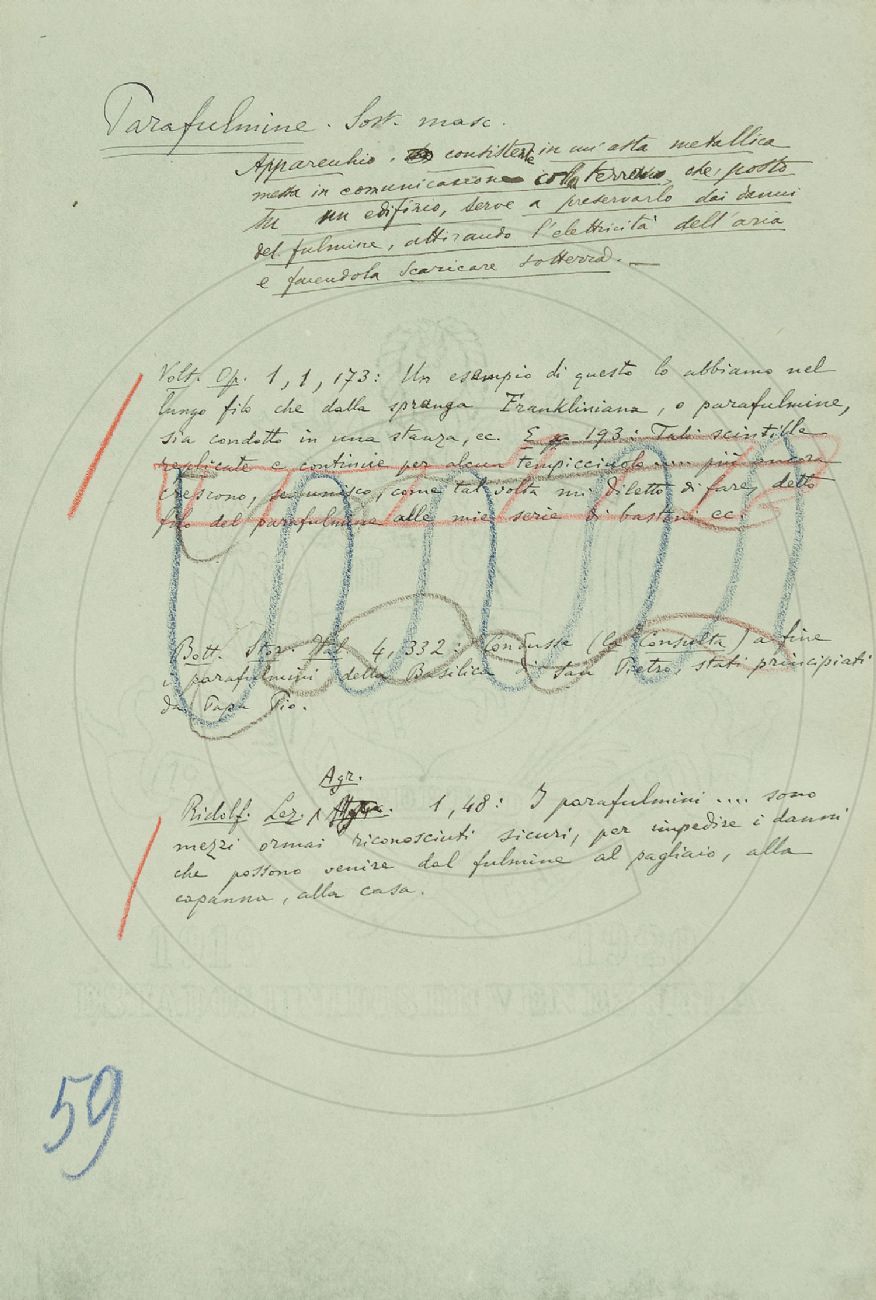 Parafulmine. Sost. masc.
Apparecchio, consistente in un'asta metallica
messa in comunicazione col terreno, che, posto
su un edifizio, serve a preservarlo dai danni
del fulmine, attirando l'elettricità dell'aria
e facendola scaricare sotterra. —
Volt. Op. 1, 1, 173: Un esempio di questo lo abbiamo nel
lungo filo che dalla spranga Frankliniana, o parafulmine,
sia condotto in una stanza, ec. E 193: Tali scintille
replicate e continue per alcun tempicciuolo .... più ancora
crescono, se unisco, come talvolta mi diletto di fare, detto
filo del parafulmine alle mie serie di bastoni ec.
Bott. Stor. Ital. 4, 332: Condusse (la Consulta) a fine
i parafulmini della Basilica di San Pietro, stati principiati
da Papa Pio.
Agr.
Ridolf. Lez. 1, 48: I parafulmini .... sono
mezzi ormai riconosciuti sicuri, per impedire i danni
che possono venire dal fulmine al pagliaio, alla
capanna, alla casa.
59